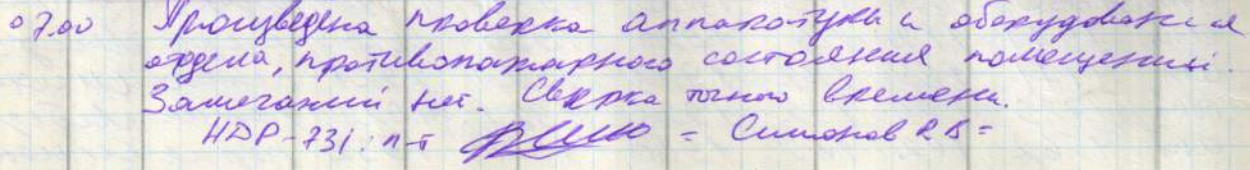 07.00 Произведена проверка аппаратуры и оборудования
отдела, противопожарного состояния помещений.
Замечаний нет. Сверка точного времени.
НДР-731: п-т = Симонов Р.В =